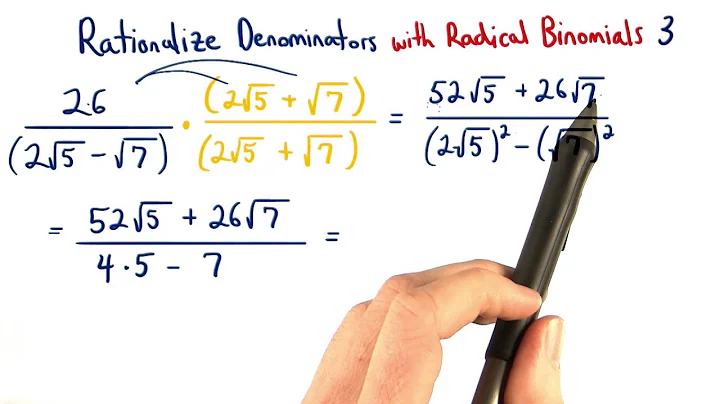 Rationalize Denominators with Radical Binomials 3
26/(2√5 − √7) · (2√5 + √7)/(2√5 + √7) = (52√5 + 26√7)/((2√5)² − (√7)²)
= (52√5 + 26√7)/(4·5 − 7) =